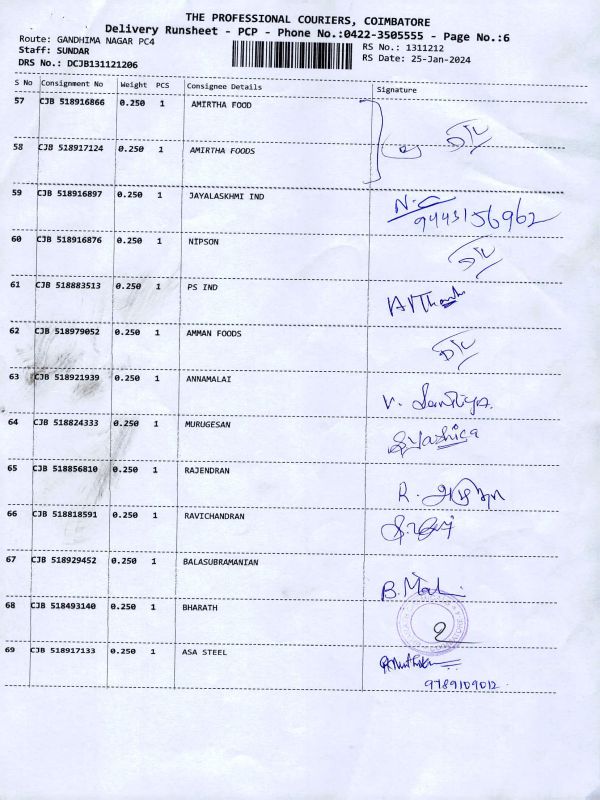 THE PROFESSIONAL COURIERS, COIMBATORE
Delivery Runsheet - PCP - Phone No.:0422-3505555 - Page No.:6
Route: GANDHIMA NAGAR PC4
RS No.: 1311212
Staff: SUNDAR
RS Date: 25-Jan-2024
DRS No.: DCJB131121206
S No Consignment No Weight PCS Consignee Details Signature
57 CJB 518916866 0.250 1 AMIRTHA FOOD
58 CJB 518917124 0.250 1 AMIRTHA FOODS
59 CJB 518916897 0.250 1 JAYALASKHMI IND
9443156962
60 CJB 518916876 0.250 1 NIPSON
61 CJB 518883513 0.250 1 PS IND
62 CJB 518979052 0.250 1 AMMAN FOODS
63 CJB 518921939 0.250 1 ANNAMALAI
64 CJB 518824333 0.250 1 MURUGESAN
65 CJB 518856810 0.250 1 RAJENDRAN
66 CJB 518818591 0.250 1 RAVICHANDRAN
67 CJB 518929452 0.250 1 BALASUBRAMANIAN
68 CJB 518493140 0.250 1 BHARATH
69 CJB 518917133 0.250 1 ASA STEEL
9789109012